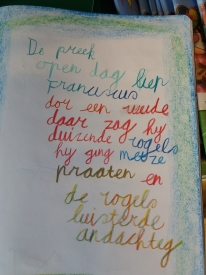 De preek
open dag liep
franciscus
dor een weide
daar zag hy
duizende vogels
hy ging met ze
praaten en
de vogels
luisterde
andachteg